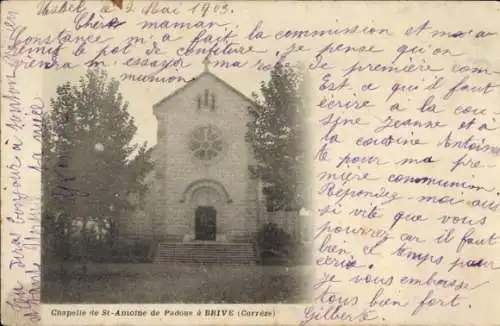 le 2 Mai 1903.
Chère maman.
Constance m'a fait la commission et m'a
remis le pot de confiture. je pense qu'on
viendra m'essayer ma robe de première com
munion.
Est ce qu'il faut
écrire à la cou-
sine Jeanne et à
la cousine Antoinette
pour ma pre-
mière communion
Répondez-moi aus
si vite que vous
pourrez car il faut
bien le temps pour
écrire.
je vous embrasse
tous bien fort.
Gilberte.
bonjour à
la
Chapelle de St-Antoine de Padoue à BRIVE (Corrèze)